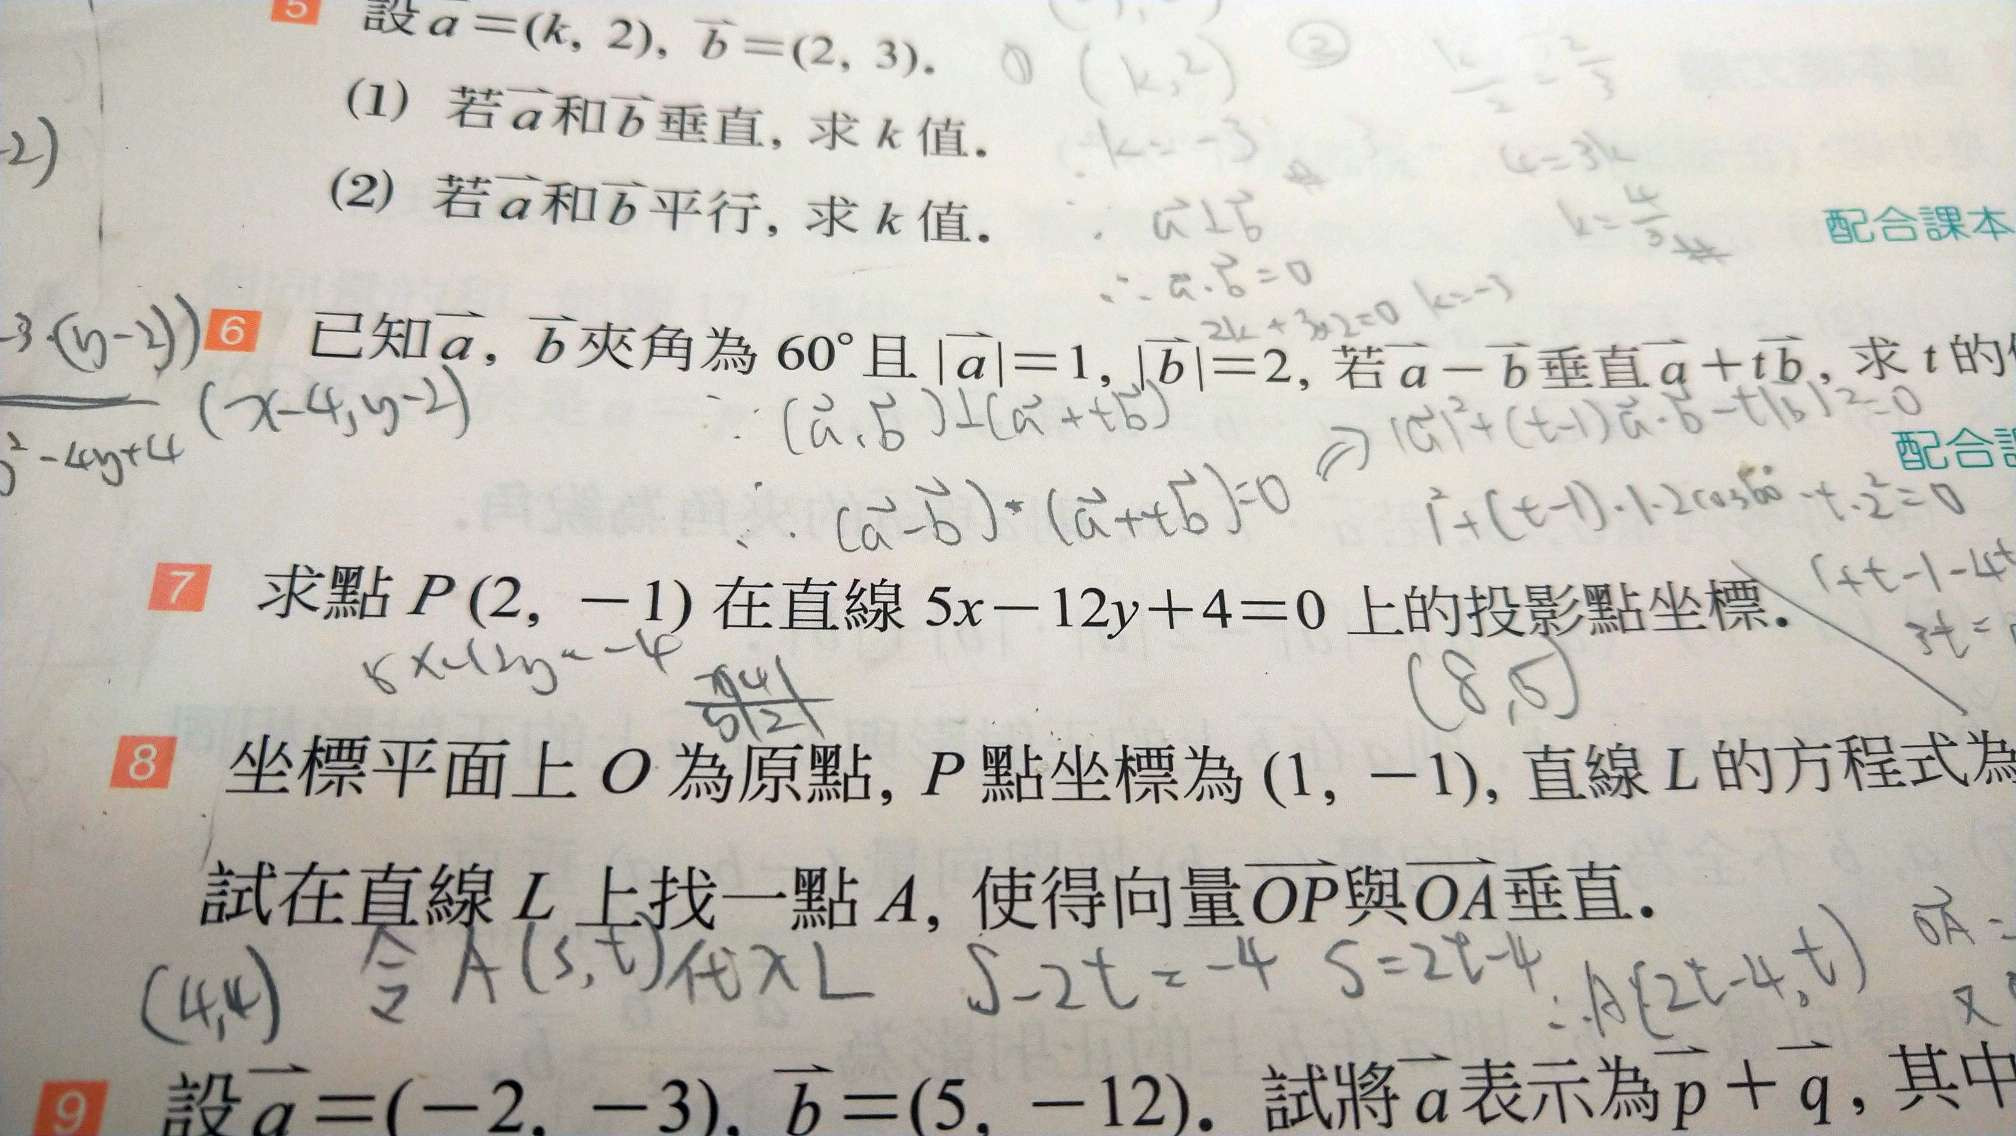 5 設a=(k, 2), b=(2, 3).
(1) 若a和b垂直, 求 k 值.
(2) 若a和b平行, 求 k 值.
(k,2)
②
k/2=2/3
k=-3
4=3k
k=4/3
a⊥b
∴ a·b=0
2k+3×2=0 k=-3
配合課本
-2)
-3·(y-2))
6 已知a, b夾角為 60°且 |a|=1, |b|=2, 若a-b垂直a+tb, 求 t 的
(x-4,y-2)
²-4y+4
∵ (a,b)⊥(a+tb)
⇒ |a|²+(t-1)a·b-t|b|²=0
配合
∴ (a-b)·(a+tb)=0
1²+(t-1)·1·2cos60°-t·2²=0
1+t-1-4t
3t=
7 求點 P(2, -1) 在直線 5x-12y+4=0 上的投影點坐標.
5x-12y=-4
(8,5)
8 坐標平面上 O 為原點, P 點坐標為 (1, -1), 直線 L 的方程式為
試在直線 L 上找一點 A, 使得向量OP與OA垂直.
(4,4)
令 A(s,t)代入L s-2t=-4 s=2t-4 ∴A(2t-4,t)
OA=
又
9 設a=(-2, -3), b=(5, -12). 試將a表示為p+q, 其中